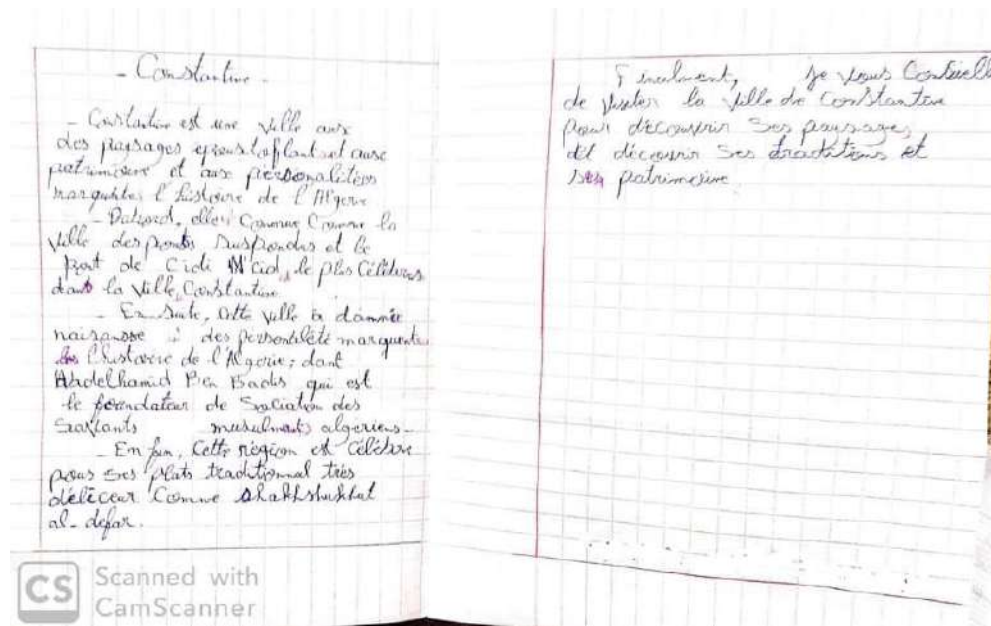 - Constantine -
- Constantine est une ville aux
des paysages epoustoflant et aux
patrimoine et aux personalités
marquntes l'histoire de l'Algerie
- Dabord, elle connue comme la
ville des ponts suspondus et le
pont de Cidi M'cid, le plus célèbres
dant la ville, Constantine
- En suite, cette ville à donnée
naissance à des personalété marquente
l'histoire de l'Algerie; dant
Abdelhamid Ben Badis qui est
le foundateur de des
musulmants algériens -
- En fin, Cette région est célèbre
pour ses plats traditionnal très
déliceur Comme shakhshukhat
al-defar.
Finalment, je vous Conseille
de visiter la ville de Constantine
pour découvrir ses paysages,
et découvrir ses traditions et
ses patrimoine
CS Scanned with
CamScanner